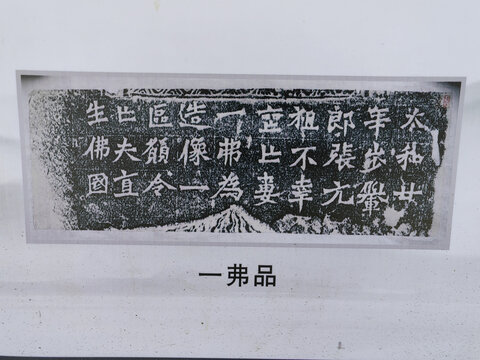 太和廿
年步轝
郎張元
祖不幸
喪亡妻
一弗為
造像一
區願令
亡夫直
生佛國
一弗品